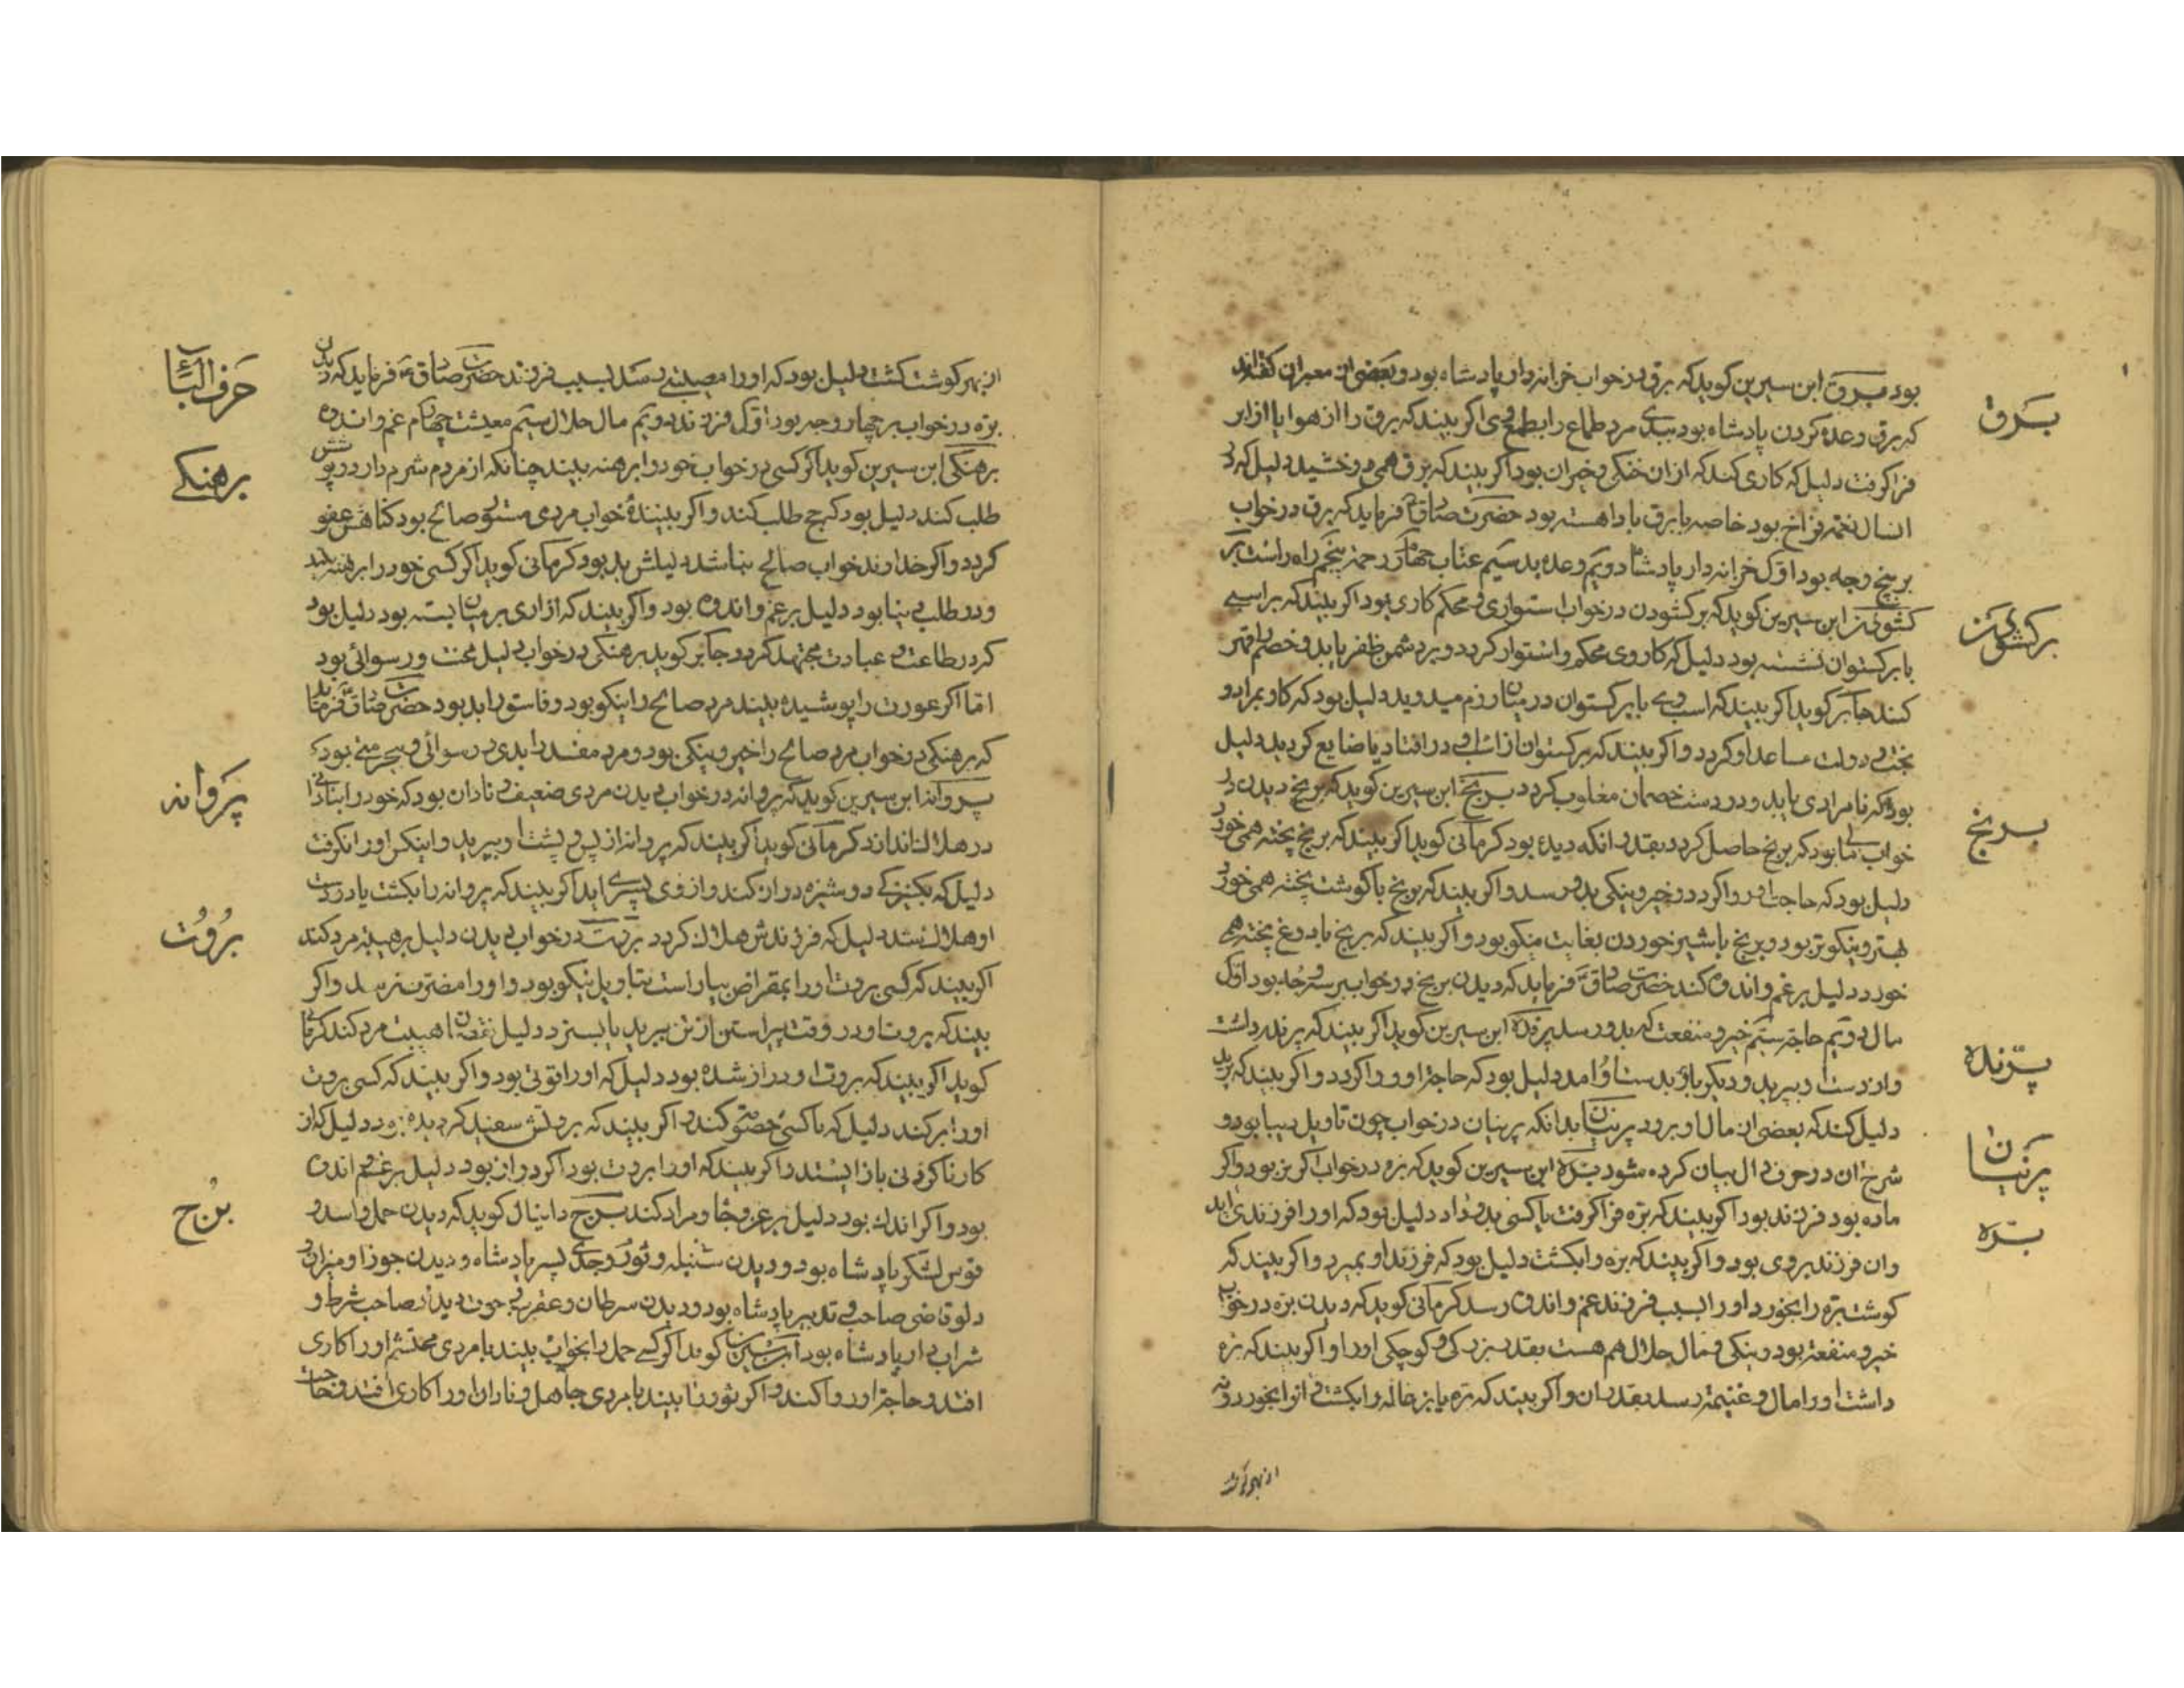 برق
بود برق ابن سیرین کوید که برق در خواب خزانه دار پادشاه بود و بعضی از معبران کفته‌اند
که برق وعده کردن پادشاه بود مرد طماع را بطمع اکر بیند که برق را از هوا یا از ابر
فرا کرفت دلیل که کاری کند که از ان خنکی و خیران بود اکر بیند که برق همی درخشید دلیل که در
انسال نعمت فراخ بود خاصه با برق باد اهسته بود حضرت صادق فرماید که برق در خواب
بر پنج وجه بود اول خزانه دار پادشاه دویم وعده بد سیم عتاب چهارم رحمت پنجم راه راست بر
برکشودن
کشودن ابن سیرین کوید که برکشودن در خواب استواری و محکم کاری بود اکر بیند که بر اسبی
با برکستوان نشسته بود دلیل که کار وی محکم و استوار کردد و بر دشمن ظفر یابد و خصم را قهر
کند جابر کوید اکر بیند که اسب وی با برکستوان در میان رزم میدوید دلیل بود که کار بمراد و
بخت و دولت مساعد او کردد و اکر بیند که برکستوان از اسب وی در افتاد یا ضایع کردید دلیل
برنج
بود که نامرادی یابد و در دست خصمان مغلوب کردد برنج ابن سیرین کوید که برنج دیدن در
خواب مالی بود که برنج حاصل کردد بقدر انکه دیده بود کرمانی کوید اکر بیند که برنج پخته همی خورد
دلیل بود که حاجت او روا کردد و خیر و نیکی بدو رسد و اکر بیند که برنج با کوشت پخته همی خورد
بهتر و نیکوتر بود و برنج با شیر خوردن بغایت نیکو بود و اکر بیند که برنج با دوغ پخته همی
خورد دلیل بر غم و اندوه کند حضرت صادق فرماید که دیدن برنج در خواب بر سه وجه بود اول
پرنده
مال دویم حاجت سیم خیر و منفعت که بدو رسد پرنده ابن سیرین کوید اکر بیند که پرنده داشت
و از دست وی بپرید و دیکر باره بدست او امد دلیل بود که حاجت او روا کردد و اکر بیند که پرید
پرنیان
دلیل کند که بعضی از مال او برود پرنیان بدانکه پرنیان در خواب چون تاویل دیبا بود و
بره
شرح ان در حرف دال بیان کرده شود بره ابن سیرین کوید که بره در خواب اکر نر بود و اکر
ماده بود فرزند بود اکر بیند که بره فرا کرفت یا کسی بدو داد دلیل بود که او را فرزندی اید
و ان فرزند بروی بود و اکر بیند که بره را بکشت دلیل بود که فرزند او بمیرد و اکر بیند که
کوشت بره را بخورد او را بسبب فرزند غم و اندوه رسد کرمانی کوید که دیدن بره در خواب
خیر و منفعت بود و نیکی و مال حلال هم هست بقدر بزرکی و کوچکی او را و اکر بیند که بره
داشت او را مال و غنیمت رسد بقدر ان و اکر بیند که بره یا بزغاله را بکشت و از او بخورد و نه
از بهر کوشت
حرف الباء
از بهر کوشت کشت دلیل بود که او را مصیبتی رسد بسبب فرزند حضرت صادق فرماید که دیدن
بره در خواب بر چهار وجه بود اول فرزند دویم مال حلال سیم معیشت چهارم غم و اندوه
برهنکی
برهنکی ابن سیرین کوید اکر کسی در خواب خود را برهنه بیند چنانکه از مردم شرم دارد و پوشش
طلب کند دلیل بود که حج طلب کند و اکر بیننده خواب مردی مستور و صالح بود کناهش عفو
کردد و اکر خداوند خواب صالح نباشد دلیلش بد بود کرمانی کوید اکر کسی خود را برهنه بیند
و در طلب دنیا بود دلیل بر غم و اندوه بود و اکر بیند که ازاری بر میان بسته بود دلیل بود
که در طاعت و عبادت مجتهد کردد جابر کوید برهنکی در خواب دلیل محنت و رسوائی بود
اما اکر عورت را پوشیده بیند مرد صالح را نیکو بود و فاسق را بد بود حضرت صادق فرماید
که برهنکی در خواب مرد صالح را خیر و نیکی بود و مرد مفسد را بدی و رسوائی و بیحرمتی بود
پروانه
پروانه ابن سیرین کوید که پروانه در خواب دیدن مردی ضعیف و نادان بود که خود را بنادانی
در هلاک اندازد کرمانی کوید اکر بیند که پروانه از پس پشت او بپرید و اینکس او را نکرفت
دلیل که بکنیزکی دوشیزه دران کند و از وی پسری اید اکر بیند که پروانه را بکشت یا در دست
بروت
او هلاک شد دلیل که فرزندش هلاک کردد بروت در خواب دیدن دلیل بر هیبت مرد کند
اکر بیند که کسی بروت او را بمقراض بیاراست بتاویل نیکو بود و او را مضرت نرسد و اکر
بیند که بروت او در وقت پیراستن از تن ببرید یا بسترد دلیل نقصان هیبت مرد کند کرمانی
کوید اکر بیند که بروت او دراز شده بود دلیل که او را قوتی بود و اکر بیند که کسی بروت
او را بر کند دلیل که با کسی خصومتی کند و اکر بیند که بروتش سفید کردیده بود دلیل که از
کار ناکردنی باز ایستد و اکر بیند که او را بروت بود اکر دراز بود دلیل بر غم و اندوه
برج
بود و اکر اندک بود دلیل بر عز و جاه و مراد کند برج دانیال کوید که دیدن حمل و اسد و
قوس لشکر پادشاه بود و دیدن سنبله و ثور و جدی پسر پادشاه و دیدن جوزا و میزان و
دلو قاضی صاحب تدبیر پادشاه بود و دیدن سرطان و عقرب و حوت دیدن صاحب شرط و
شراب دار پادشاه بود ابن سیرین کوید اکر کسی حمل را بخواب بیند با مردی محتشم او را کاری
افتد و حاجت او روا کند و اکر ثور را بیند با مردی جاهل و نادان او را کاری افتد و حاجت